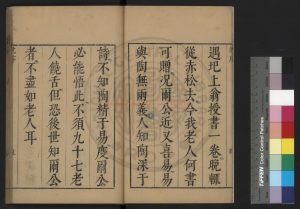 遇圯上翁授書一卷晚輒
從赤松去今我老人何書
可贈况爾公近又喜易易
與陶無兩義人知陶深于
詩不知陶精于易慶爾公
必能悟此不須九十七老
人饒舌但恐後世知爾公
者不盡如老人耳